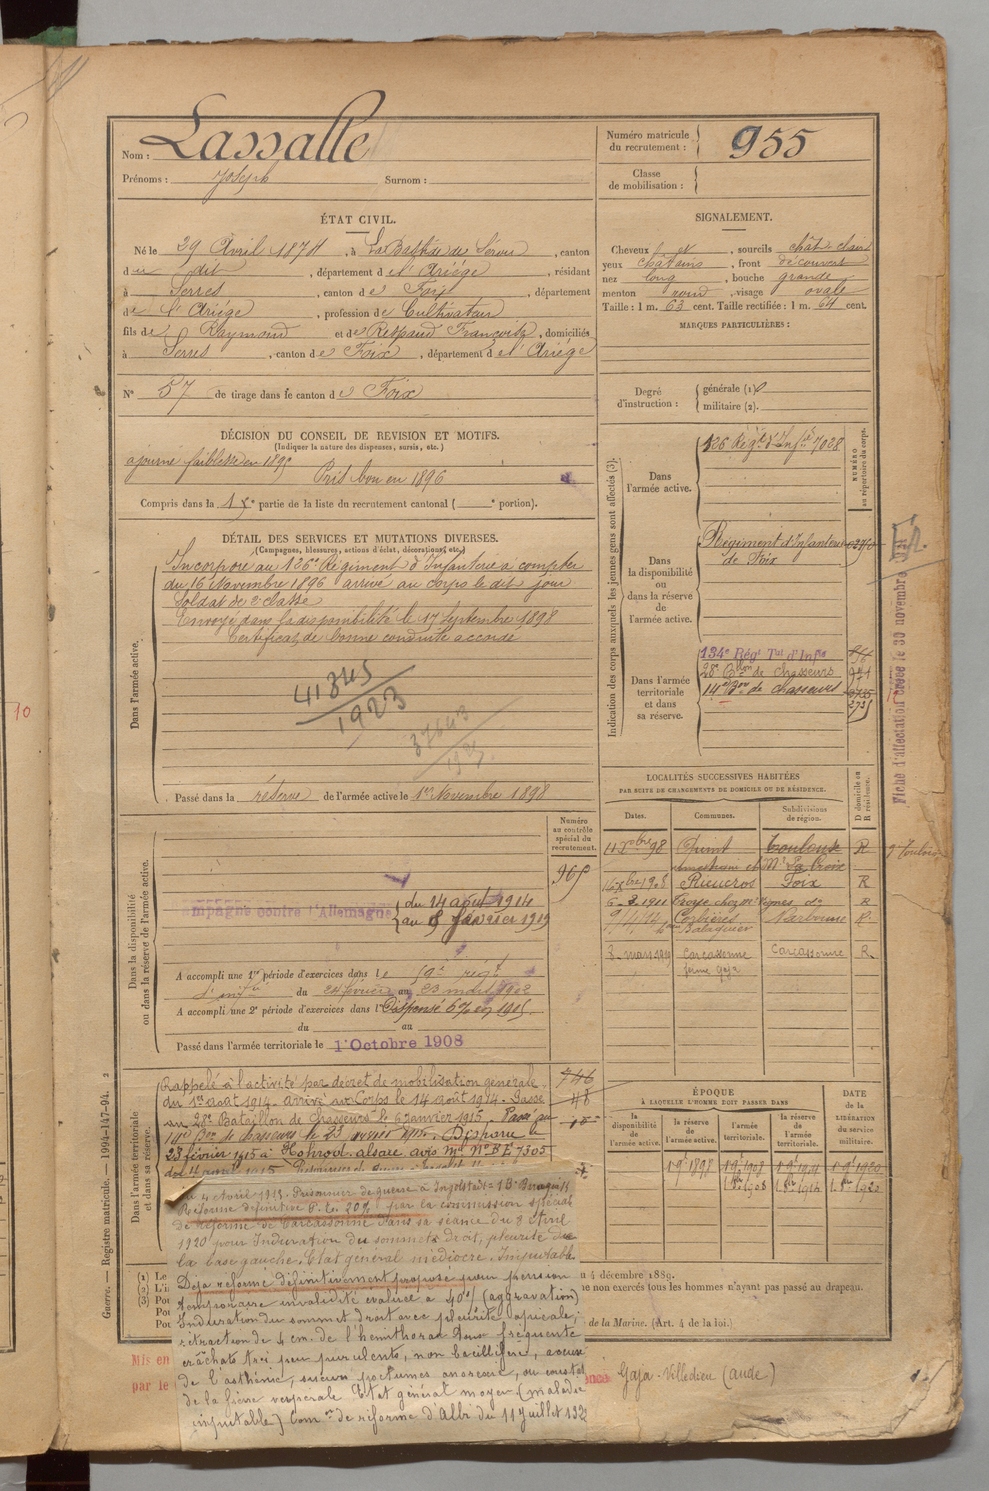 Nom : Lassalle
Prénoms : Joseph Surnom :
Numéro matricule du recrutement : 955
Classe de mobilisation :
ÉTAT CIVIL.
Né le 29 Avril 1874, à La Bastide de Sérou, canton
du dit, département de l'Ariège, résidant
à Serres, canton de Foix, département
de l'Ariège, profession de Cultivateur
fils de Raymond et de Respaud Françoise, domiciliés
à Serres, canton de Foix, département de l'Ariège
N° 57 de tirage dans le canton de Foix
SIGNALEMENT.
Cheveux, sourcils chât clair
yeux châtains, front découvert
nez long, bouche grande
menton rond, visage ovale
Taille : 1 m. 63 cent. Taille rectifiée : 1 m. 64 cent.
MARQUES PARTICULIÈRES :
Degré d'instruction : générale (1)
militaire (2).
DÉCISION DU CONSEIL DE REVISION ET MOTIFS.
(Indiquer la nature des dispenses, sursis, etc.)
ajourné faiblesse en 1895
Pris bon en 1896
Compris dans la 1e partie de la liste du recrutement cantonal ( e portion).
DÉTAIL DES SERVICES ET MUTATIONS DIVERSES.
(Campagnes, blessures, actions d'éclat, décorations, etc.)
Dans l'armée active.
Incorporé au 126e Régiment d'Infanterie à compter
du 16 Novembre 1896 arrivé au corps le dit jour
Soldat de 2e classe
Envoyé dans la disponibilité le 17 Septembre 1898
Certificat de bonne conduite accordé
41345
1923
37643
Passé dans la réserve de l'armée active le 1er Novembre 1898
Indication des corps auxquels les jeunes gens sont affectés (3).
NUMÉRO au répertoire du corps.
Dans l'armée active.
126 Régt d'Infie 7028
Dans la disponibilité ou dans la réserve de l'armée active.
Régiment d'Infanterie
de Foix
Dans l'armée territoriale et dans sa réserve.
134e Régt Tal d'Infie
28e Bon de chasseurs
14e Bon de chasseurs
Fiche d'affectation créée le 30 novembre
Dans la disponibilité ou dans la réserve de l'armée active.
Numéro au contrôle spécial du recrutement.
965
Campagne contre l'Allemagne
du 14 août 1914
au 8 Janvier 1919
A accompli une 1re période d'exercices dans le 59e régt
d'infie du 24 février au 23 mars 1902
A accompli une 2e période d'exercices dans l Dispensé en 1905
du au
Passé dans l'armée territoriale le 1 Octobre 1908
LOCALITÉS SUCCESSIVES HABITÉES
PAR SUITE DE CHANGEMENTS DE DOMICILE OU DE RÉSIDENCE.
Dates. Communes. Subdivisions de région. D domicile ou R résidence.
11 Xbre 98 Quint Toulouse R
Xbre 1908 Rieucros Foix R
6-3-1911 R
9/4/14 Corbières Narbonne R
3 mars 1919 Carcassonne Carcassonne R
ferme Gaja
Dans l'armée territoriale et dans sa réserve.
Rappelé à l'activité par décret de mobilisation générale
du 1er août 1914. arrivé au Corps le 14 août 1914. Passé
au 28e Bataillon de Chasseurs le 6 janvier 1915. Passé au
14e Bon de chasseurs le 23 janvier 1915. Disparu le
23 février 1915 à Hohrod-alsace avis Mel N° BE 7305
du 4 avril 1915. Prisonnier de guerre à Ingolstadt
Réformé définitivt P. t. 20% par la commission spéciale
de réforme de Carcassonne dans sa séance du 8 Avril
1920 pour Induration du sommet droit, pleurite de
la base gauche. Etat général médiocre. Imputable
Déjà réformé définitivement proposé pour pension
temporaire invalidité évaluée à 40% (aggravation)
Induration du sommet droit avec pleurite apicale,
rétraction de 4 cm. de l'hémithorax. Toux fréquente
crachats très peu purulents, non bacillifère, accuse
de l'asthénie, sueurs nocturnes anorexie, on constate
de la fièvre vespérale Etat général moyen (maladie
imputable) Comon de réforme d'Albi du 11 Juillet 192
ÉPOQUE
À LAQUELLE L'HOMME DOIT PASSER DANS
la disponibilité de l'armée active. la réserve de l'armée active. l'armée territoriale. la réserve de l'armée territoriale.
DATE de la LIBÉRATION du service militaire.
1 9bre 1898 1 9bre 1908 1 9bre 1914 1 9bre 1920
1 8bre 1908 1 8bre 1914 1 8bre 1920
(1) Le
(2) L'in
(3) Pou
Pou
Pou
4 décembre 1889.
ne non exercés (tous les hommes n'ayant pas passé au drapeau.
de la Marine. (Art. 4 de la loi.)
Mis en
par le
Gaja-Villedieu (Aude)
Guerre. — Registre matricule. — 1994-147-94. 2